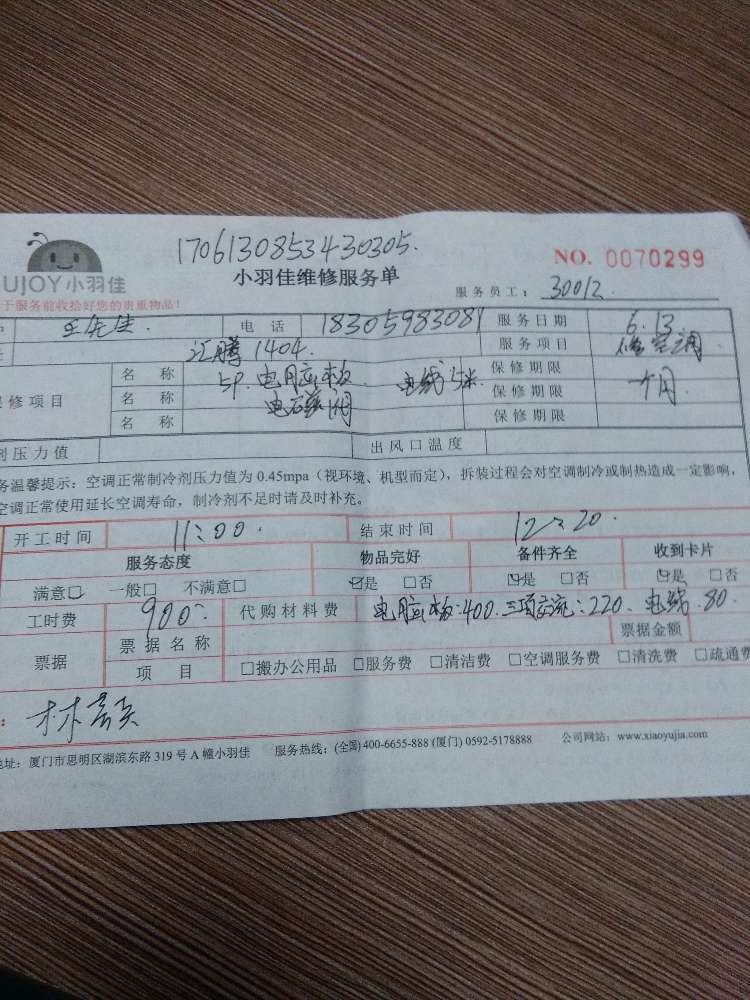 1706130853430305.
UJOY小羽佳
小羽佳维修服务单
NO. 0070299
于服务前收拾好您的贵重物品!
服务员工: 30012
电 话 18305983081 服务日期 6.13
汇腾1404. 服务项目 修空调
修项目 名 称 5P. 电脑主板 电线5米. 保修期限
名 称 保修期限 一个月
名 称 保修期限
剂压力值 出风口温度
务温馨提示:空调正常制冷剂压力值为 0.45mpa(视环境、机型而定),拆装过程会对空调制冷或制热造成一定影响,
空调正常使用延长空调寿命,制冷剂不足时请及时补充。
开工时间 11:00. 结束时间 12:20.
服务态度 物品完好 备件齐全 收到卡片
满意☑ 一般□ 不满意□ ☑是 □否 ☑是 □否 ☑是 □否
工时费 900 代购材料费 电脑主板:400.三项交流:220、电线.80.
票据 票据名称 票据金额
项 目 □搬办公用品 □服务费 □清洁费 □空调服务费 □清洗费 □疏通费
地址:厦门市思明区湖滨东路 319 号 A 幢小羽佳 服务热线:(全国) 400-6655-888 (厦门) 0592-5178888 公司网站:www.xiaoyujia.com